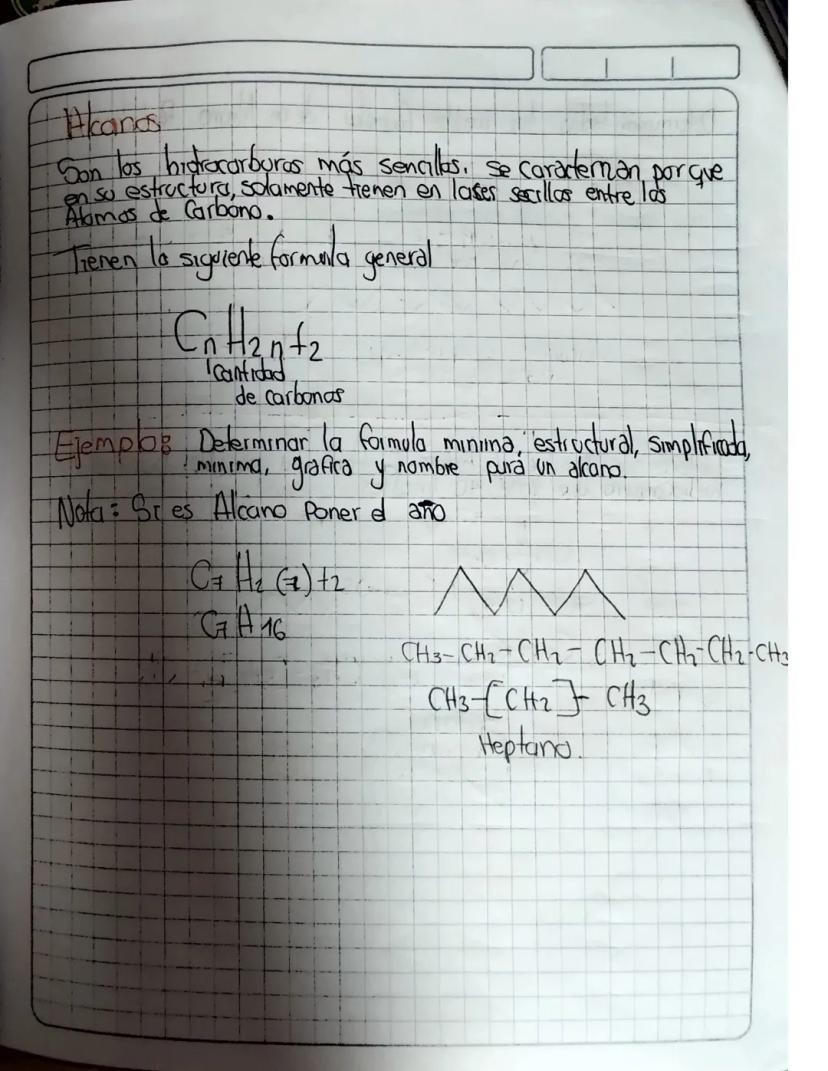 Alcanos
Son los hidrocarburos más sencillos. se caracternan porque
en su estructura, solamente tienen en lases secillos entre los
Atomos de Carbono.
Tienen la siguiente formula general
CnH2n+2
cantidad
de carbonos
Ejemplo: Determinar la formula minima, estructural, simplificada,
minima, grafica y nombre para un alcano.
Nota: Si es Alcano Poner el año
C7 H2 (7)+2
C7 H 16
CH3-CH2-CH2-CH2-CH2-CH2-CH3
CH3-[CH2]-CH3
Heptano.